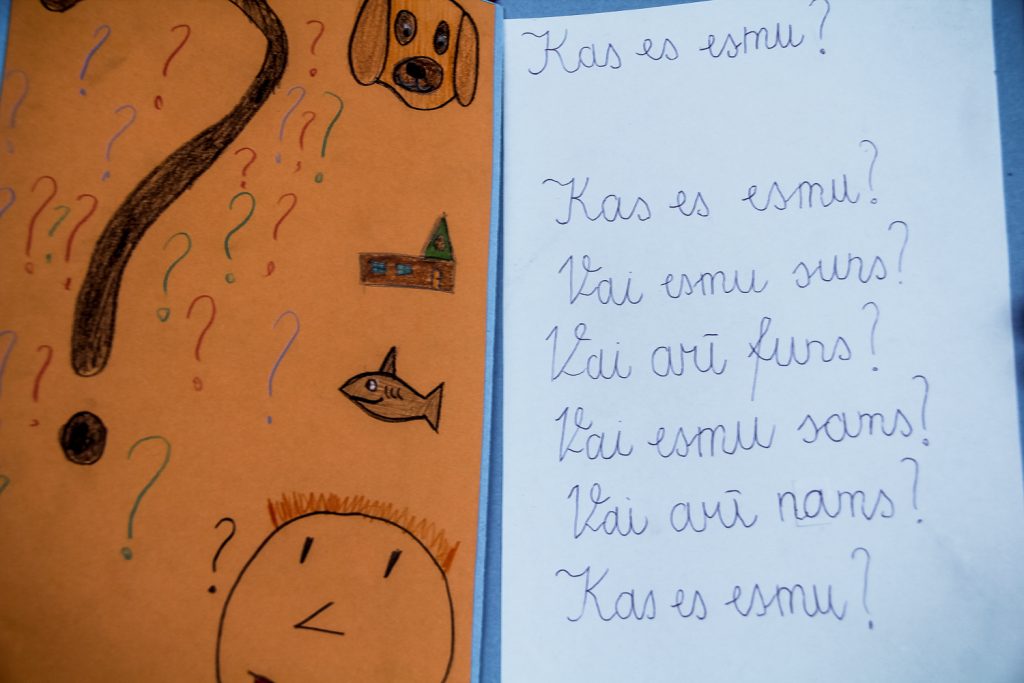 Kas es esmu?
Kas es esmu?
Vai esmu surs?
Vai arī furs?
Vai esmu sams?
Vai arī nams?
Kas es esmu?